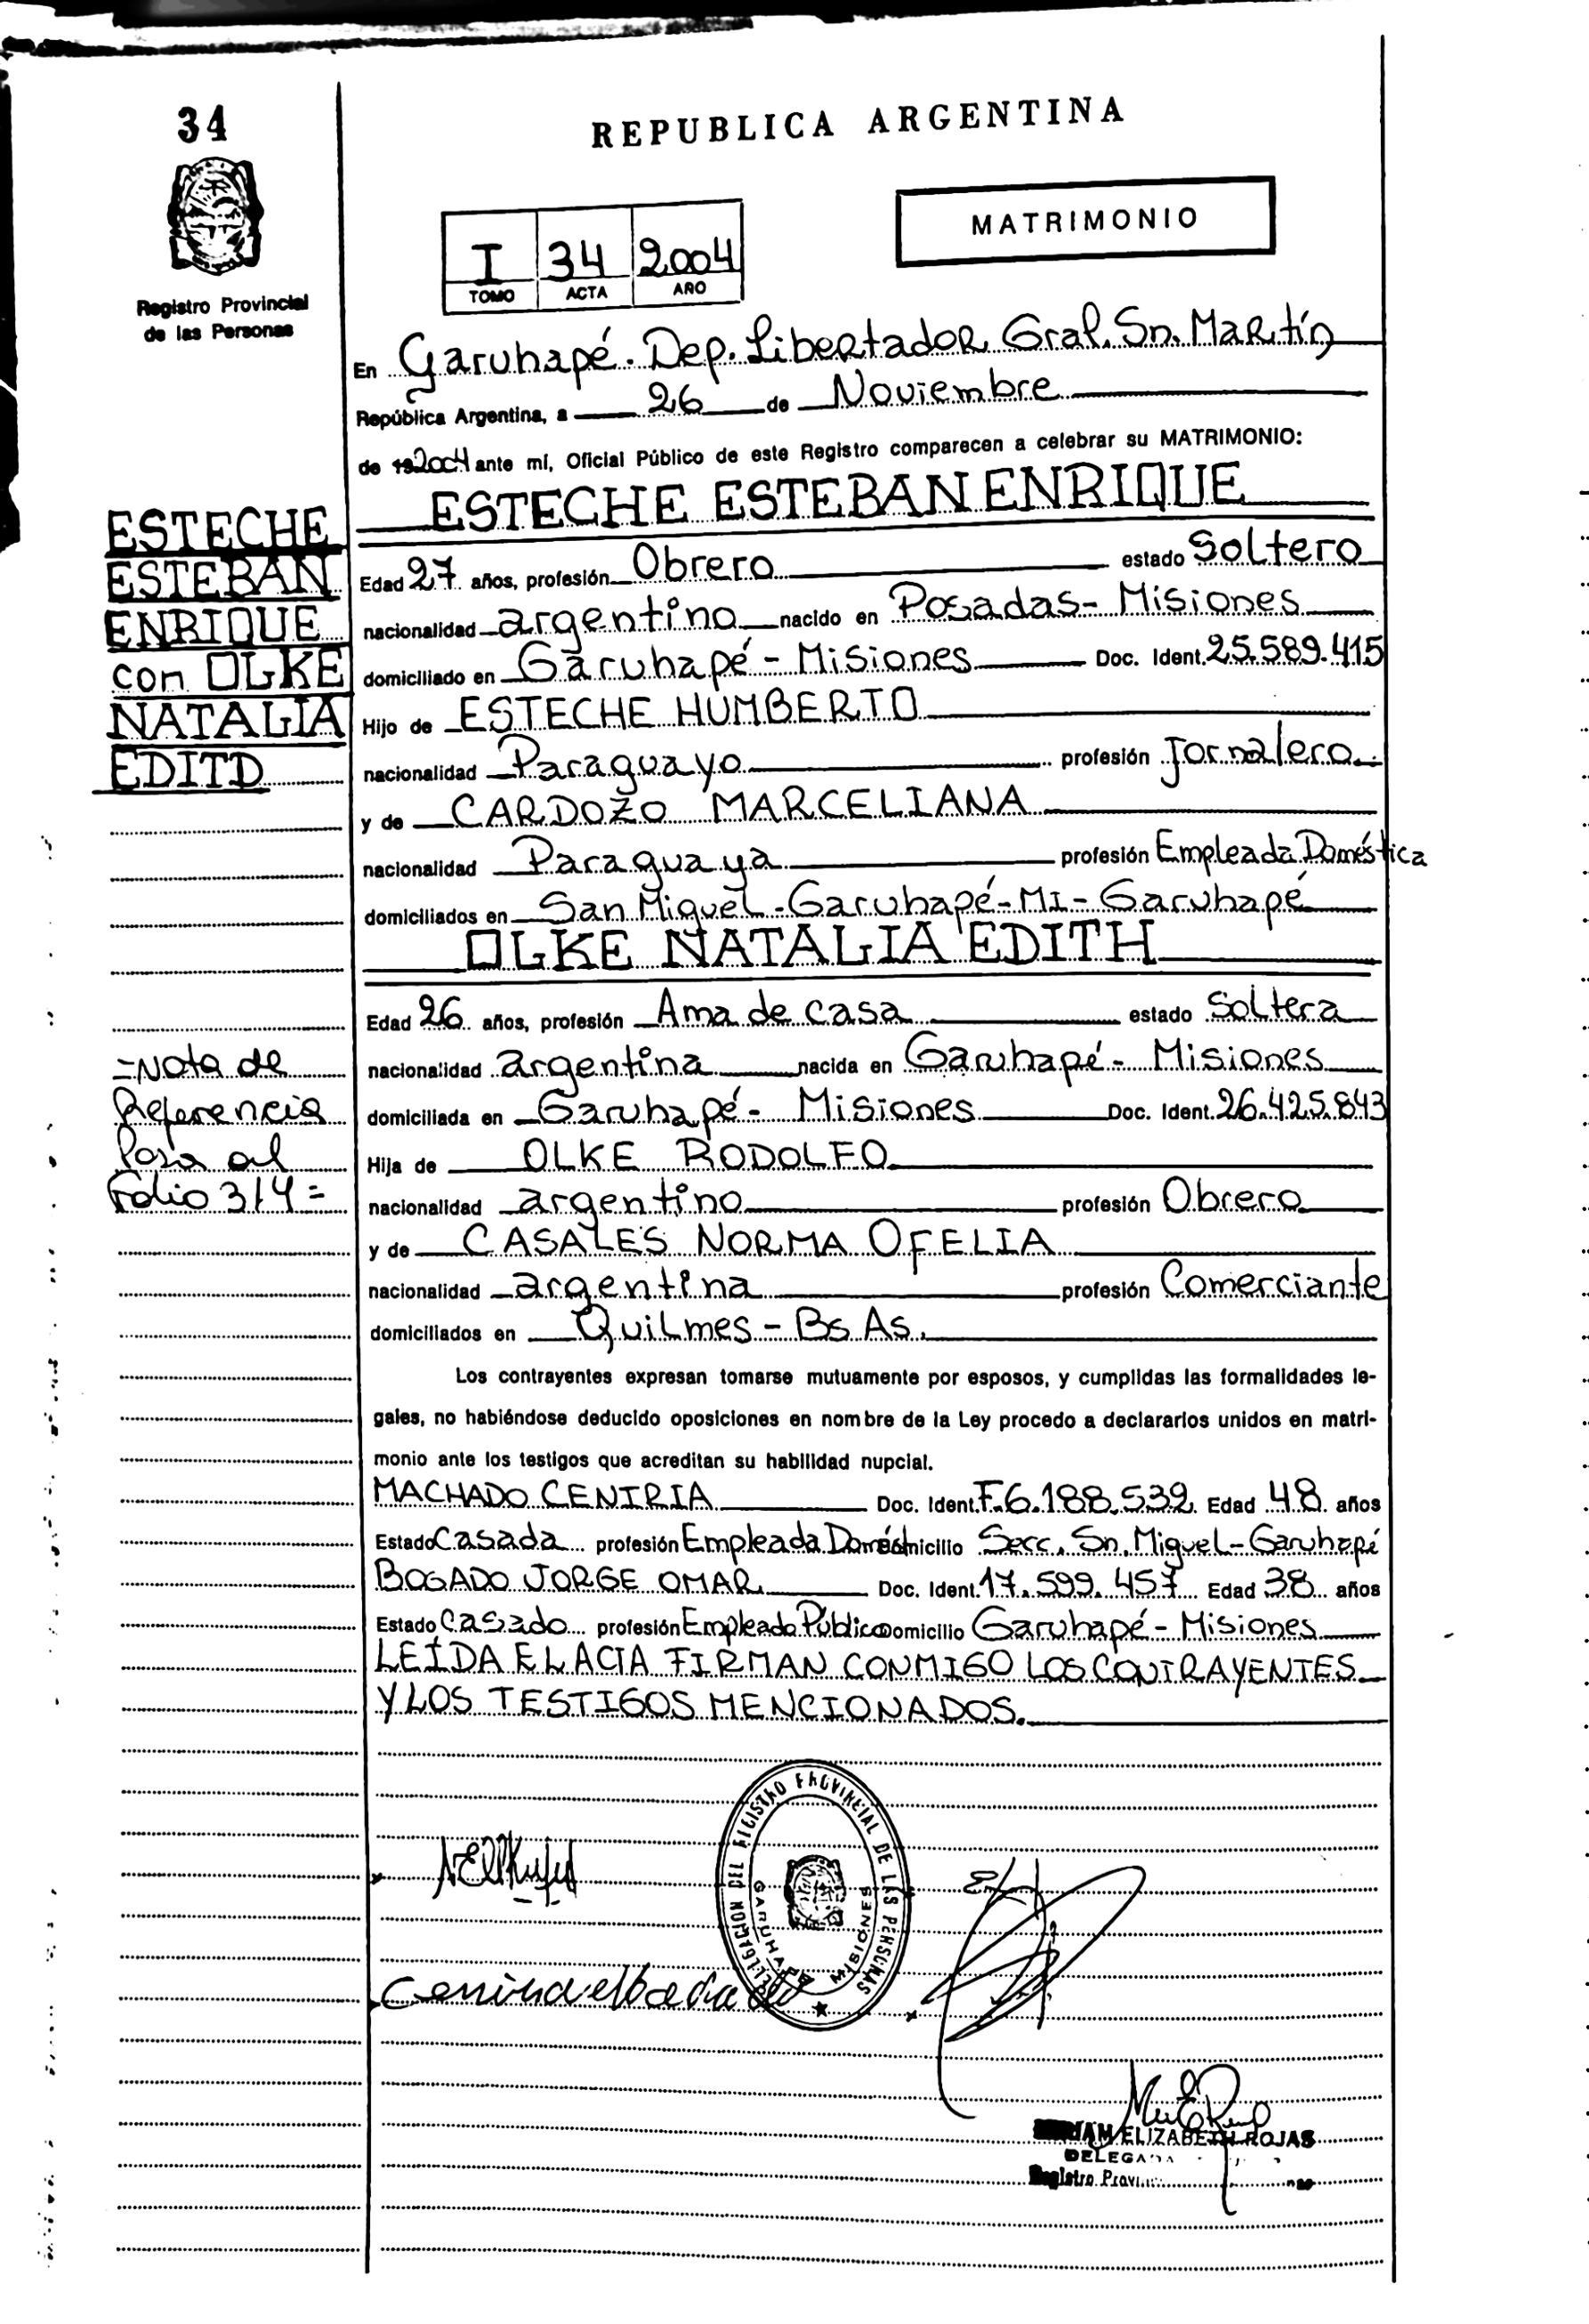 34
Registro Provincial
de las Personas
REPUBLICA ARGENTINA
MATRIMONIO
I 34 2004
TOMO ACTA AÑO
En Garuhapé. Dep. Libertador Gral. Sn. Martín
República Argentina, a 26 de Noviembre
de 192004 ante mí, Oficial Público de este Registro comparecen a celebrar su MATRIMONIO:
ESTECHE ESTEBAN ENRIQUE
Edad 27 años, profesión Obrero estado Soltero
nacionalidad argentino nacido en Posadas - Misiones
domiciliado en Garuhapé - Misiones Doc. Ident. 25.589.415
Hijo de ESTECHE HUMBERTO
nacionalidad Paraguayo profesión Jornalero
y de CARDOZO MARCELIANA
nacionalidad Paraguaya profesión Empleada Doméstica
domiciliados en San Miguel - Garuhapé - MI - Garuhapé
OLKE NATALIA EDITH
Edad 26 años, profesión Ama de casa estado Soltera
nacionalidad argentina nacida en Garuhapé - Misiones
domiciliada en Garuhapé - Misiones Doc. Ident. 26.425.843
Hija de OLKE RODOLFO
nacionalidad argentino profesión Obrero
y de CASALES NORMA OFELIA
nacionalidad argentina profesión Comerciante
domiciliados en Quilmes - Bs As.
Los contrayentes expresan tomarse mutuamente por esposos, y cumplidas las formalidades le-
gales, no habiéndose deducido oposiciones en nombre de la Ley procedo a declararlos unidos en matri-
monio ante los testigos que acreditan su habilidad nupcial.
MACHADO CENIRIA Doc. Ident. F.6.188.539 Edad 48 años
Estado Casada profesión Empleada Domést micilio Secc. Sn. Miguel - Garuhapé
BOGADO JORGE OMAR Doc. Ident. 17.599.457 Edad 38 años
Estado Casado profesión Empleado Público omicilio Garuhapé - Misiones
LEÍDA EL ACTA FIRMAN CONMIGO LOS CONTRAYENTES
Y LOS TESTIGOS MENCIONADOS.
ESTECHE
ESTEBAN
ENRIQUE
con OLKE
NATALIA
EDITD
=Nota de
Referencia
Pasa al
Folio 314=
DEL REGISTRO PROVINCIAL DE LAS PERSONAS
GARUHAPE MISIONES
ELIZABETH ROJAS
DELEGADA
Registro Provin